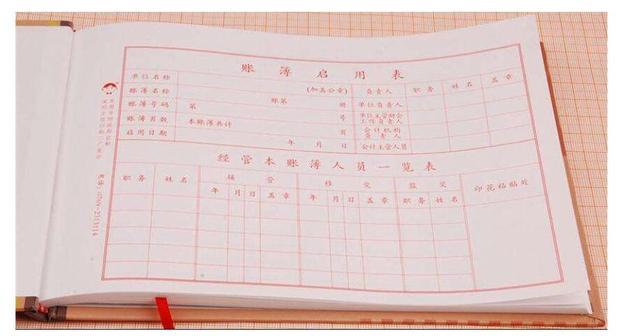 账簿启用表
单位名称 (加盖公章) 负责人 职务 姓名 盖章
账簿名称 账第 册 单位负责人
账簿号码 第 号 单位主管财会工作负责人
账簿页数 本账簿共计 页 会计机构负责人
启用日期 会计主管人员
经管本账簿人员一览表
职务 姓名 接管 移交 监交 印花粘贴处
年 月 日 盖章 年 月 日 盖章 职务 姓名